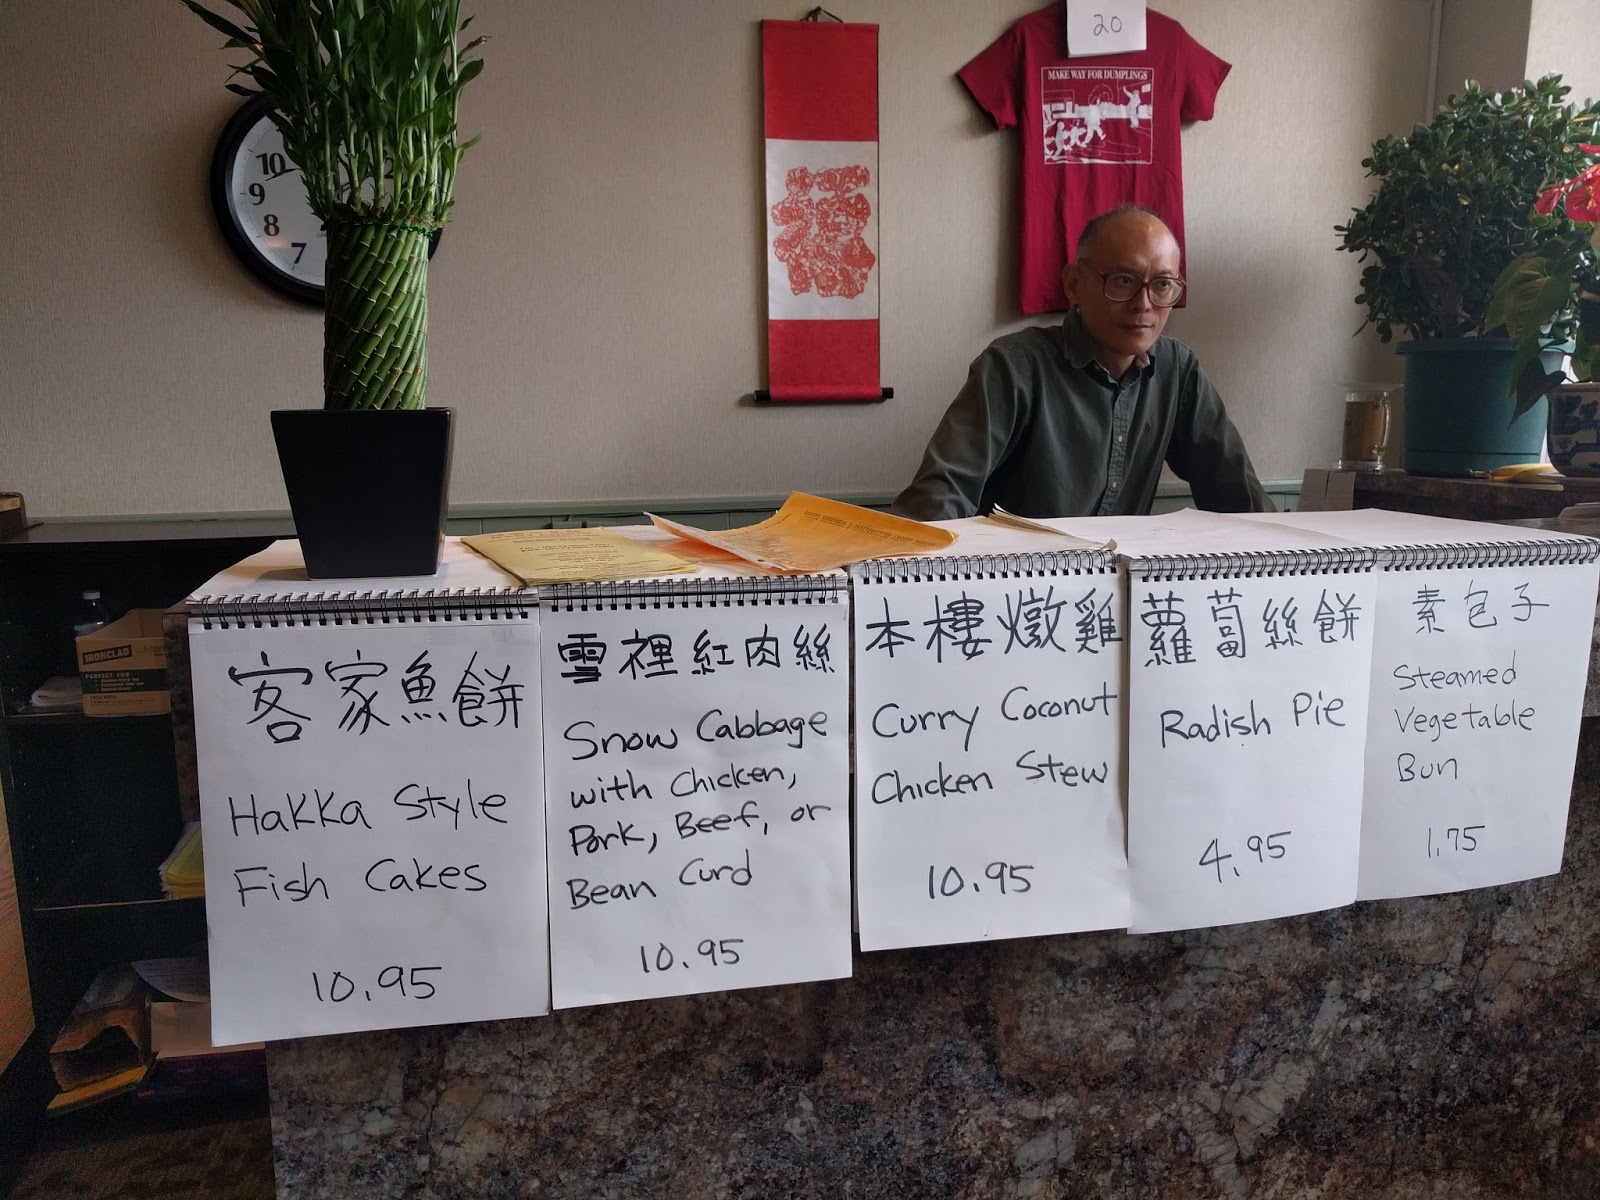 20
MAKE WAY FOR DUMPLINGS
福
10
9
8
7
2
IRONCLAD
客家魚餅
Hakka Style
Fish Cakes
10.95
雪裡紅肉絲
Snow Cabbage
with Chicken,
Pork, Beef, or
Bean Curd
10.95
本樓燉雞
Curry Coconut
Chicken Stew
10.95
蘿蔔絲餅
Radish Pie
4.95
素包子
Steamed
Vegetable
Bun
1.75